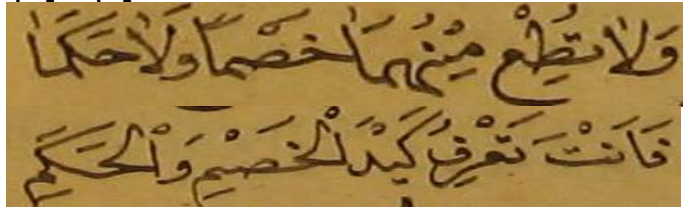 وَلَا تُطِعْ مِنْهُمَا خَصْمًا وَلَا حَكَمًا
فَاَنْتَ تَعْرِفُ كَيْدَ الْخَصْمِ وَالْحَكَمِ